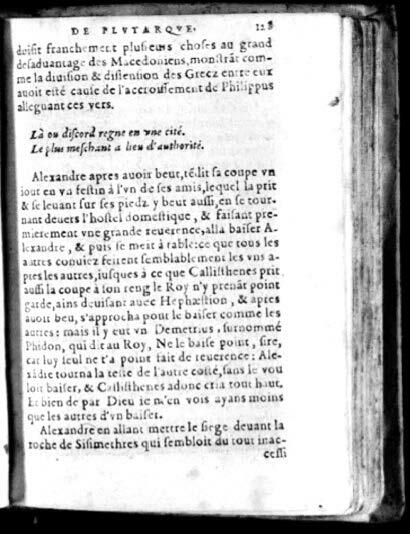 DE PLVTARQVE. 128
duisit franchement plusieurs choses au grand
desaduantage des Macedoniens, monstrāt com-
me la diuision & dissension des Grecz entre eux
auoit esté cause de l'accroissement de Philippus
alleguant ces vers.
Là ou discord regne en vne cité.
Le plus meschant a lieu d'authorité.
Alexandre apres auoir beut, tēdit sa coupe vn
iout en vn festin à l'vn de ses amis, lequel la prit
& se leuant sur ses piedz y beut aussi, en se tour-
nant deuers l'hostel domestique, & faisant pre-
mierement vne grande reuerence, alla baiser A-
lexandre, & puis se meit à table: ce que tous les
autres conuiez feirent semblablement les vns a-
pres les autres, iusques à ce que Callisthenes prit
aussi la coupe à son reng le Roy n'y prenāt point
garde, ains deuisant auec Hephæstion, & apres
auoit beu, s'approcha pour le baiser comme les
autres: mais il y eut vn Demetrius, surnommé
Phidon, qui dit au Roy, Ne le baise point, sire,
car luy seul ne t'a point fait de reuerence: Ale-
xādre tourna la teste de l'autre costé, sans le vou
loir baiser, & Callisthenes adonc cria tout haut,
Et bien de par Dieu ie m'en vois ayans moins
que les autres d'vn baiser.
Alexandre en allant mettre le siege deuant la
roche de Sisimethres qui sembloit du tout inac-
cessi